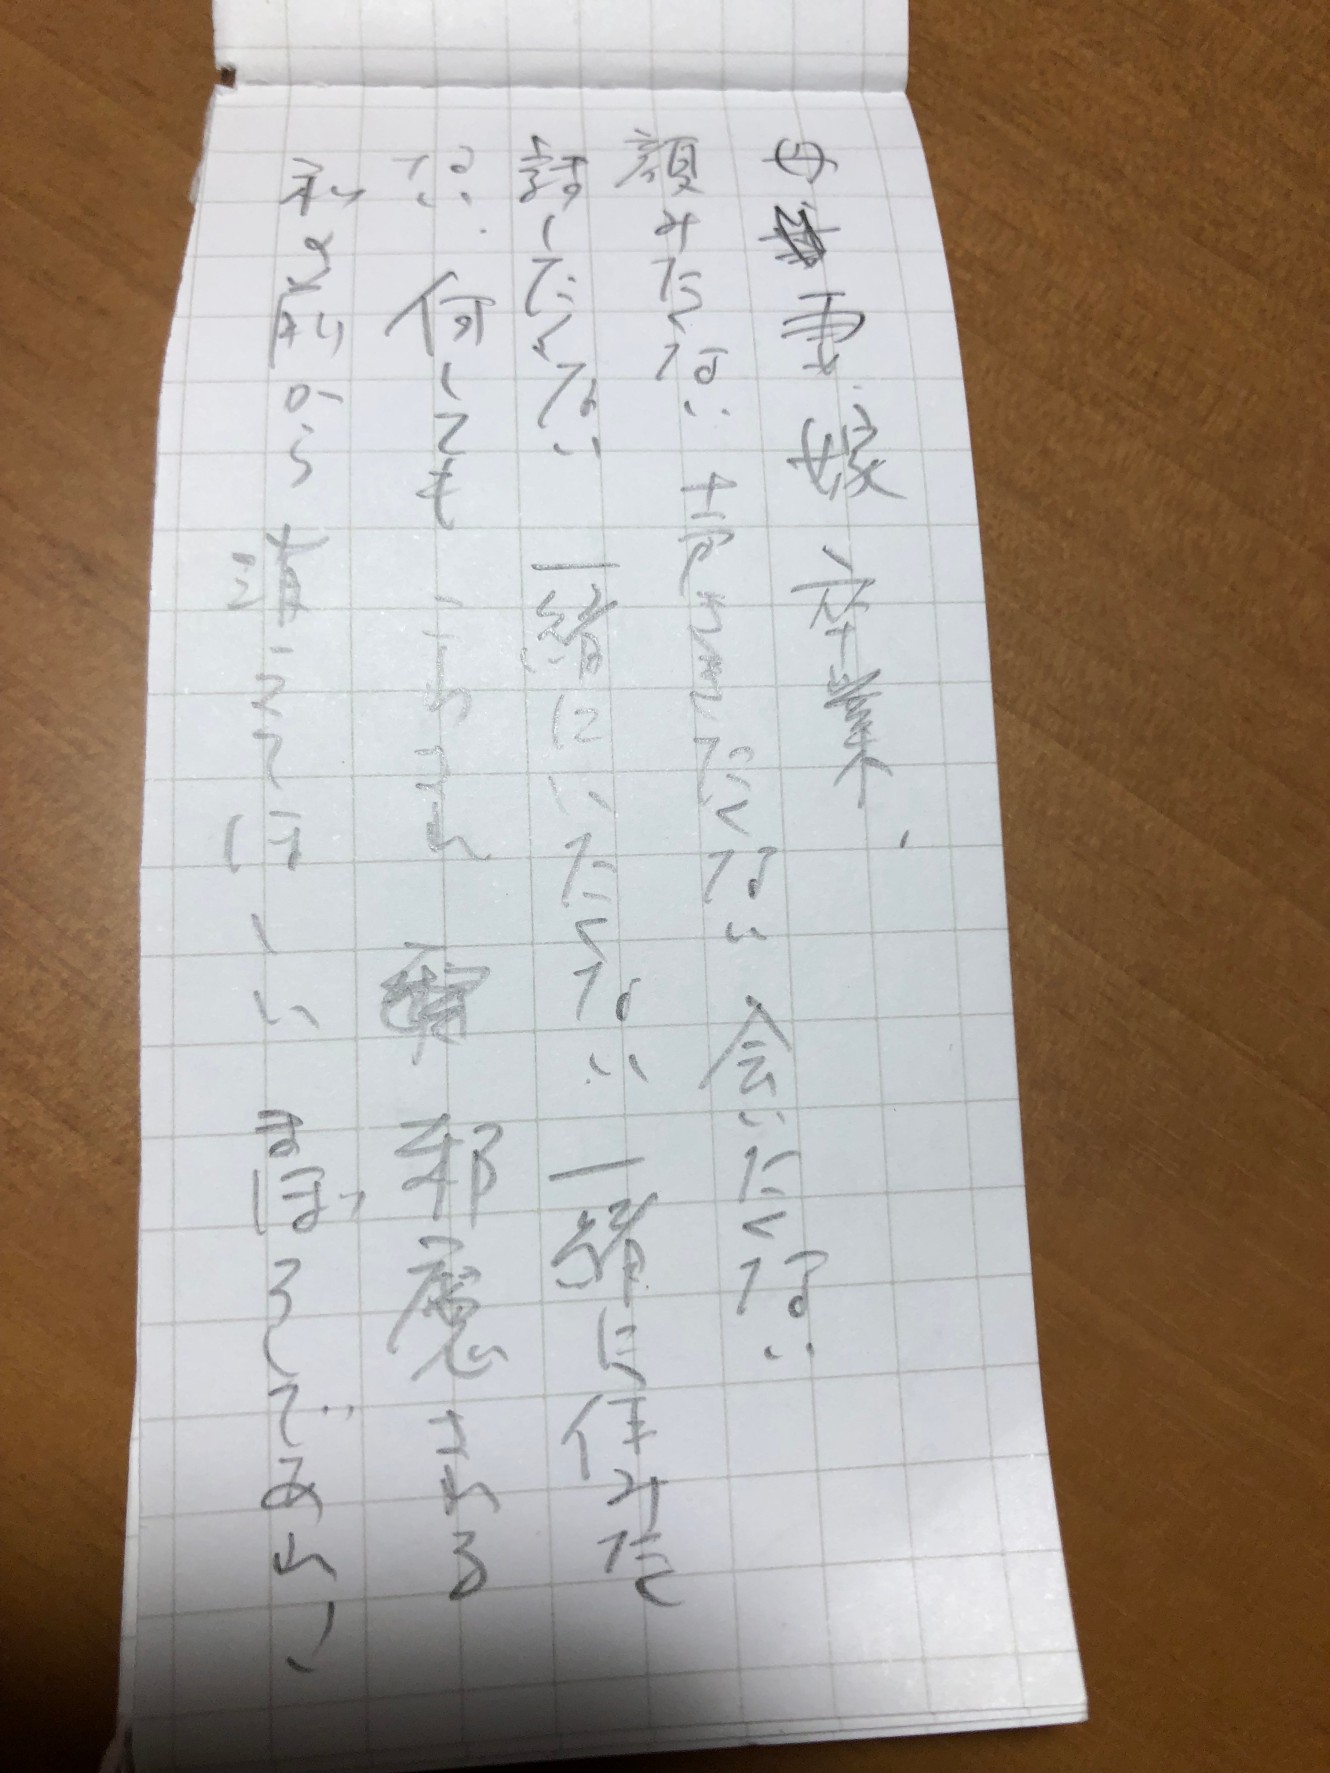 母妻嫁卒業、
顔みたくない 声ききたくない 会いたくない
話したくない 一緒にいたくない 一緒に住みたく
ない、何しても こわされ 邪魔される
私の前から消えてほしい まぼろしであれ